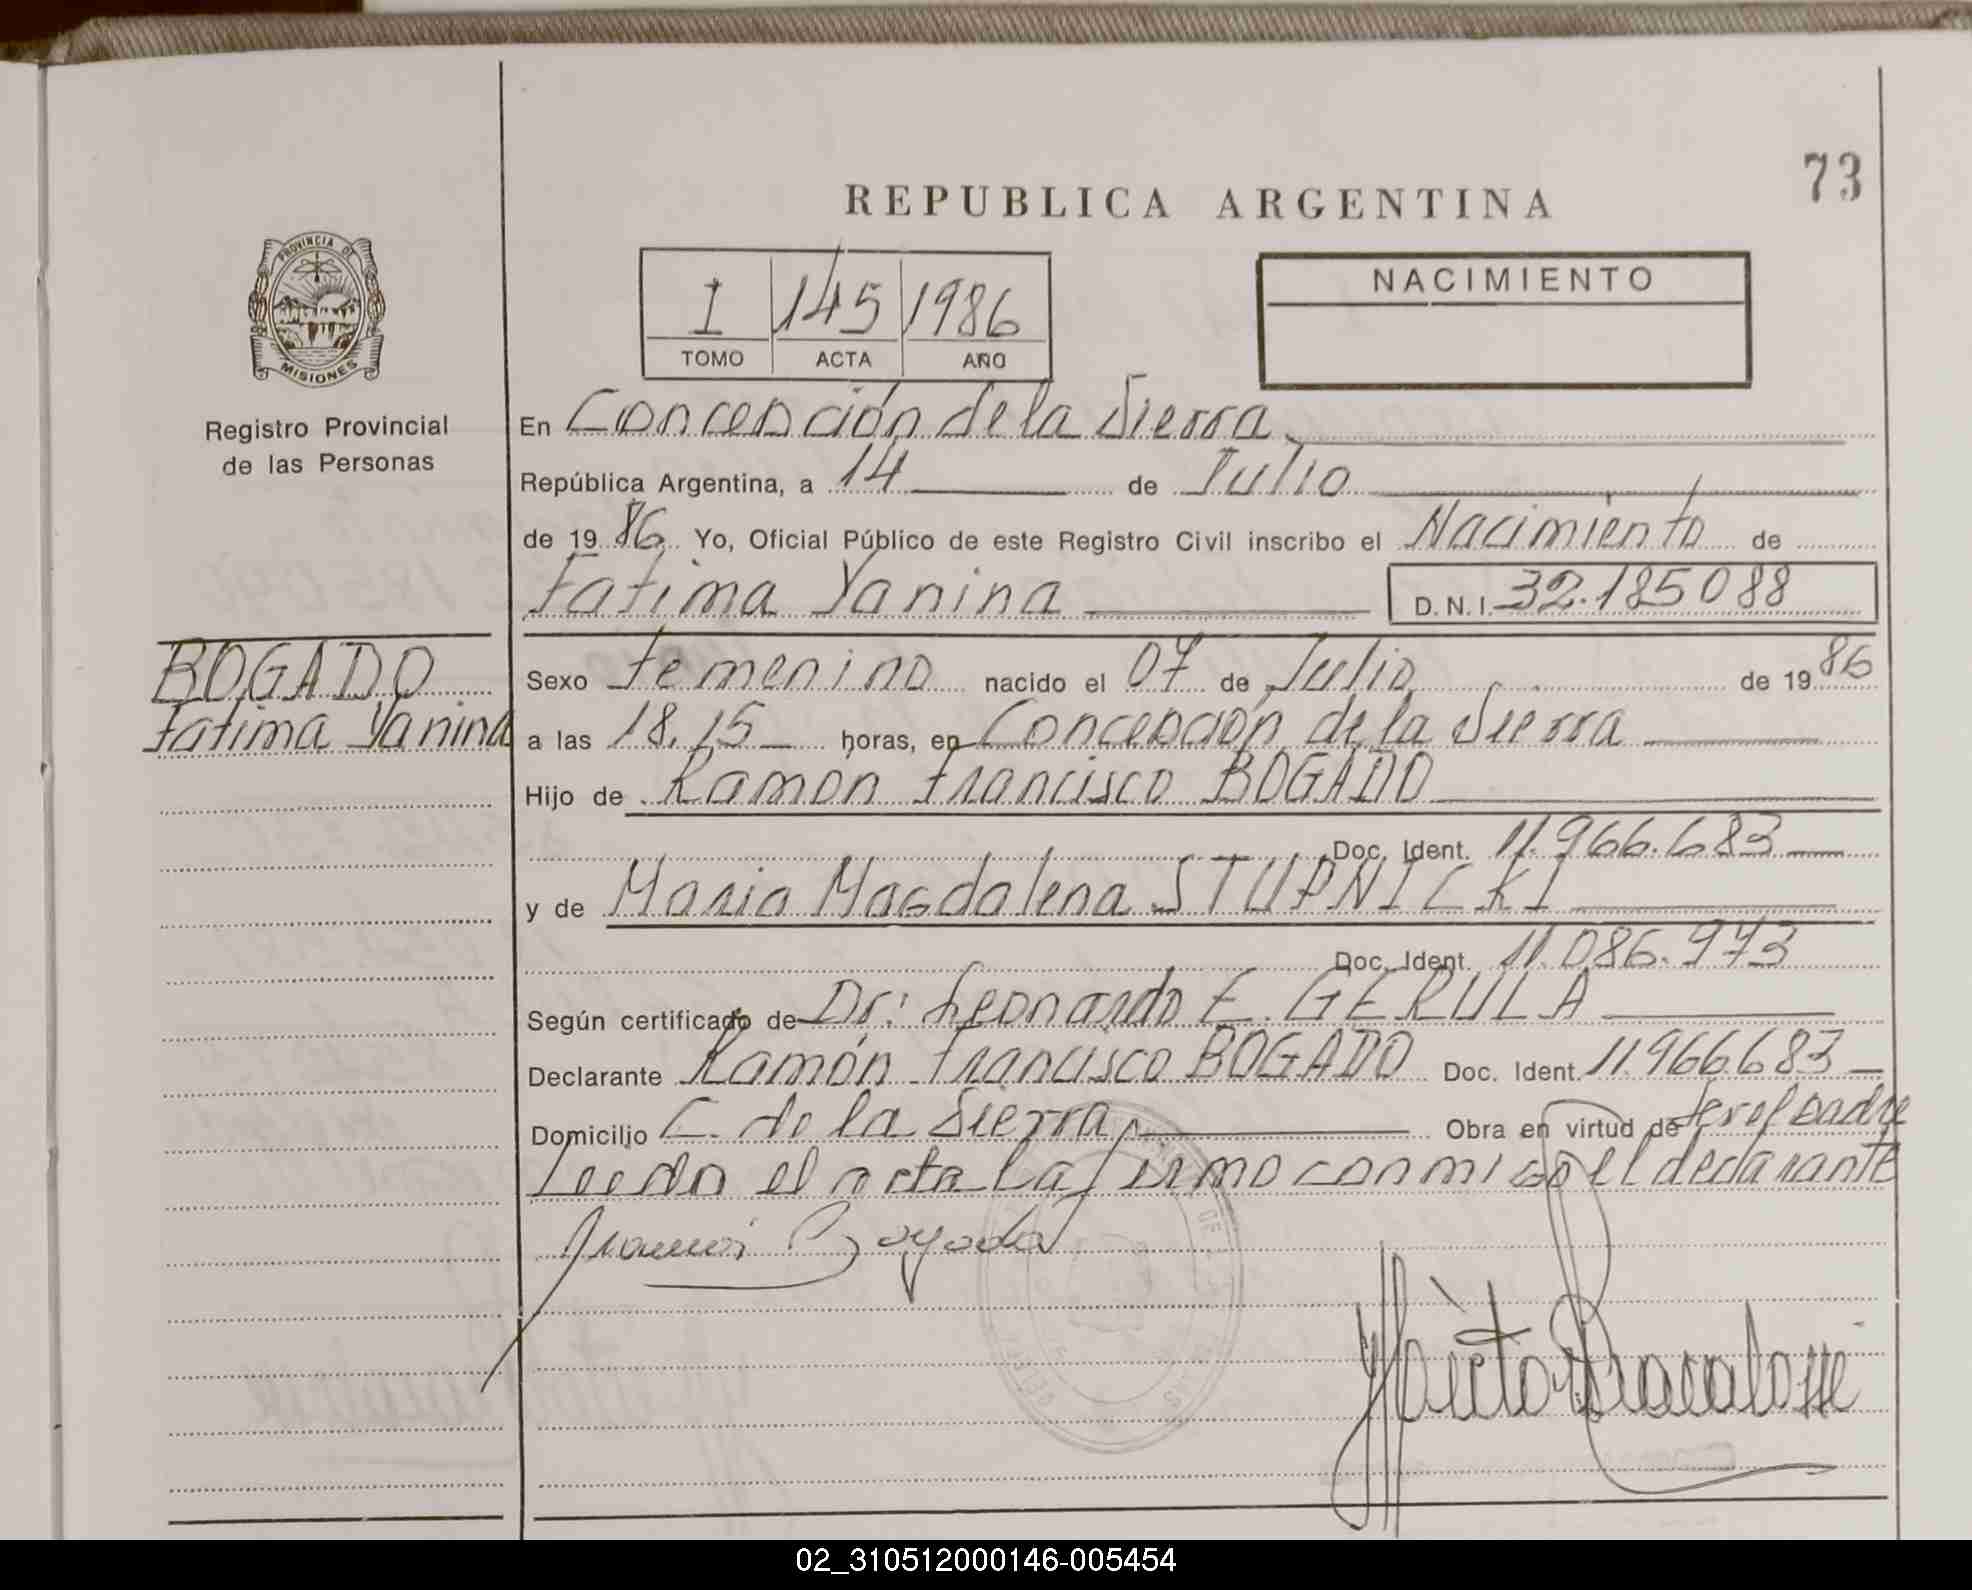 73
REPUBLICA ARGENTINA
PROVINCIA DE
MISIONES
Registro Provincial
de las Personas
I 145 1986
TOMO ACTA AÑO
NACIMIENTO
En Concepción de la Sierra
República Argentina, a 14 de Julio
de 1986 Yo, Oficial Público de este Registro Civil inscribo el Nacimiento de
Fatima Yanina D.N.I. 32.185088
BOGADO
Fatima Yanina
Sexo femenino nacido el 07 de Julio de 1986
a las 18.15 horas, en Concepción de la Sierra
Hijo de Ramon Francisco BOGADO
Doc. Ident. 11.966.683
y de Maria Magdalena STUPNICKI
Doc. Ident. 11.086.973
Según certificado de Dr: Leonardo E. GERULA
Declarante Ramón Francisco BOGADO Doc. Ident. 11.966.683
Domicilio C. de la Sierra Obra en virtud de ser el padre
Leeda el acta la firmo conmigo el declarante
02_310512000146-005454